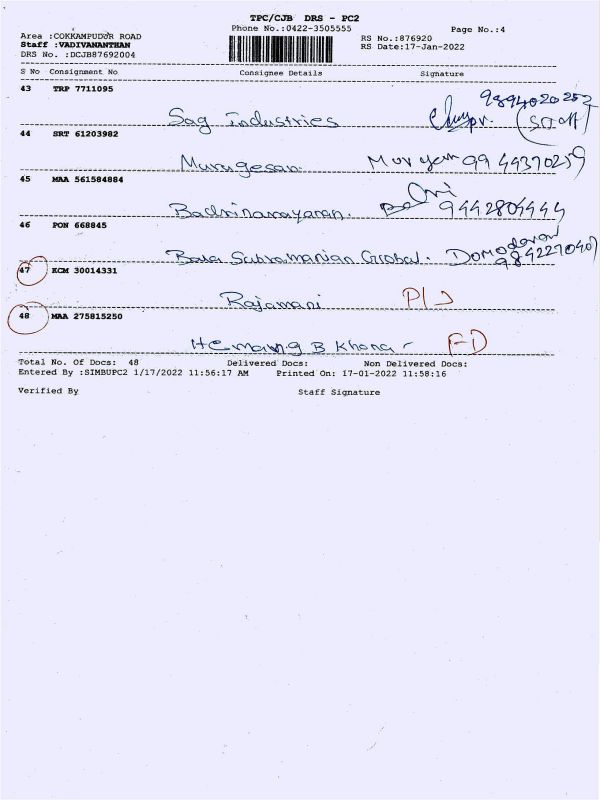 TPC/CJB DRS - PC2
Phone No.:0422-3505555 Page No.:4
Area :COKKAMPUDUR ROAD RS No.:876920
Staff :VADIVANANTHAN RS Date:17-Jan-2022
DRS No. :DCJB87692004
S No Consignment No Consignee Details Signature
43 TRP 7711095 9894020252
Sag Industries (Staff)
44 SRT 61203982
Murugesan. Murugesan 9944370259
45 MAA 561584884
Badrinarayanan. Badri 9442804444
46 PON 668845 Domodaran
Bala Subramanian Global. 9842270407
47 KCM 30014331
Rajamani P/J
48 MAA 275815250
Hemang B Khona - FD
Total No. Of Docs: 48 Delivered Docs: Non Delivered Docs:
Entered By :SIMBUPC2 1/17/2022 11:56:17 AM Printed On: 17-01-2022 11:58:16
Verified By Staff Signature